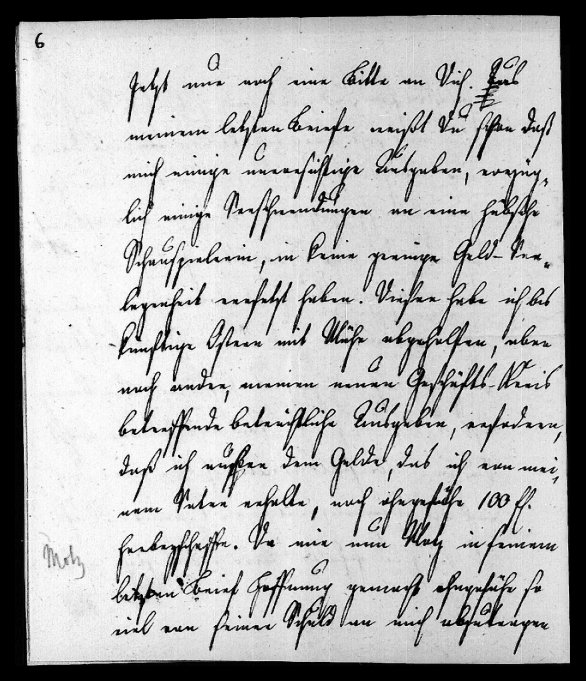 6
Jetzt nur noch eine Bitte an Dich. Aus
meinem letzten Briefe weißt Du schon daß
mich einige unvorsichtige Ausgaben, vorzüg-
lich einige Verschwendungen an eine hübsche
Schauspielerin, in keine geringe Geld-Ver-
legenheit versetzt haben. Dieser habe ich bis
künftige Ostern mit Mühe abgeholfen, aber
noch andre, meinen neuen Geschäfts-Kreis
betreffende beträchtliche Ausgaben, erfodern,
daß ich außer dem Gelde, das ich von mei-
nem Vater erhalte, noch ohngefähr 100 f.
herbeyschaffe. Da mir nun Motz in seinem
letzten Brief Hoffnung gemacht ohngefähr so
viel von seiner Schuld an mich abzutragen
Motz